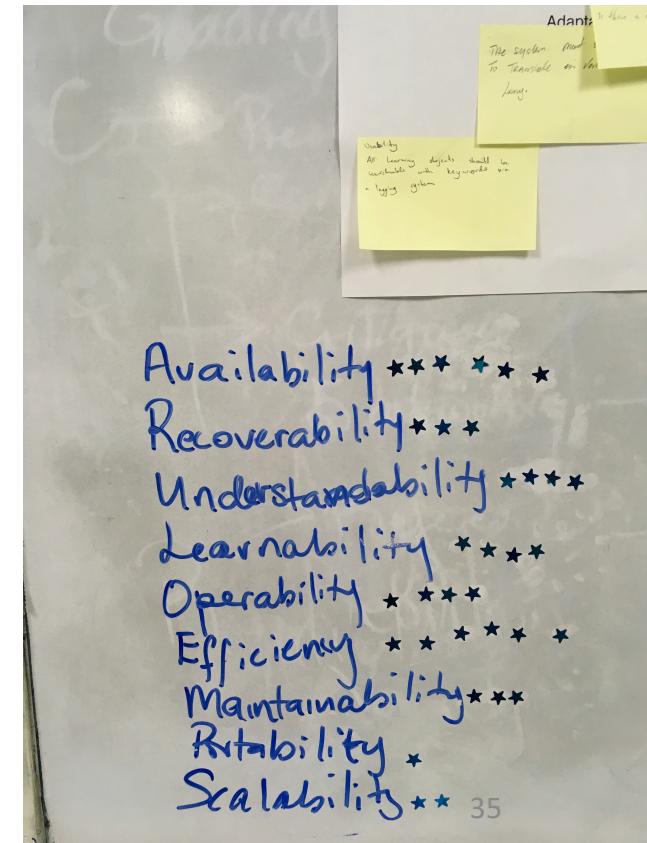 Grading
Adapta
The system must
To Translate in
Lang.
Usability
All Learning objects should be
searchable with keywords via
a tagging system
Availability ★★★ ★★ ★
Recoverability ★★★
Understandability ★★★★
Learnability ★★★★
Operability ★ ★★★
Efficiency ★ ★ ★★★ ★
Maintainability ★★★
Portability ★
Scalability ★★
35